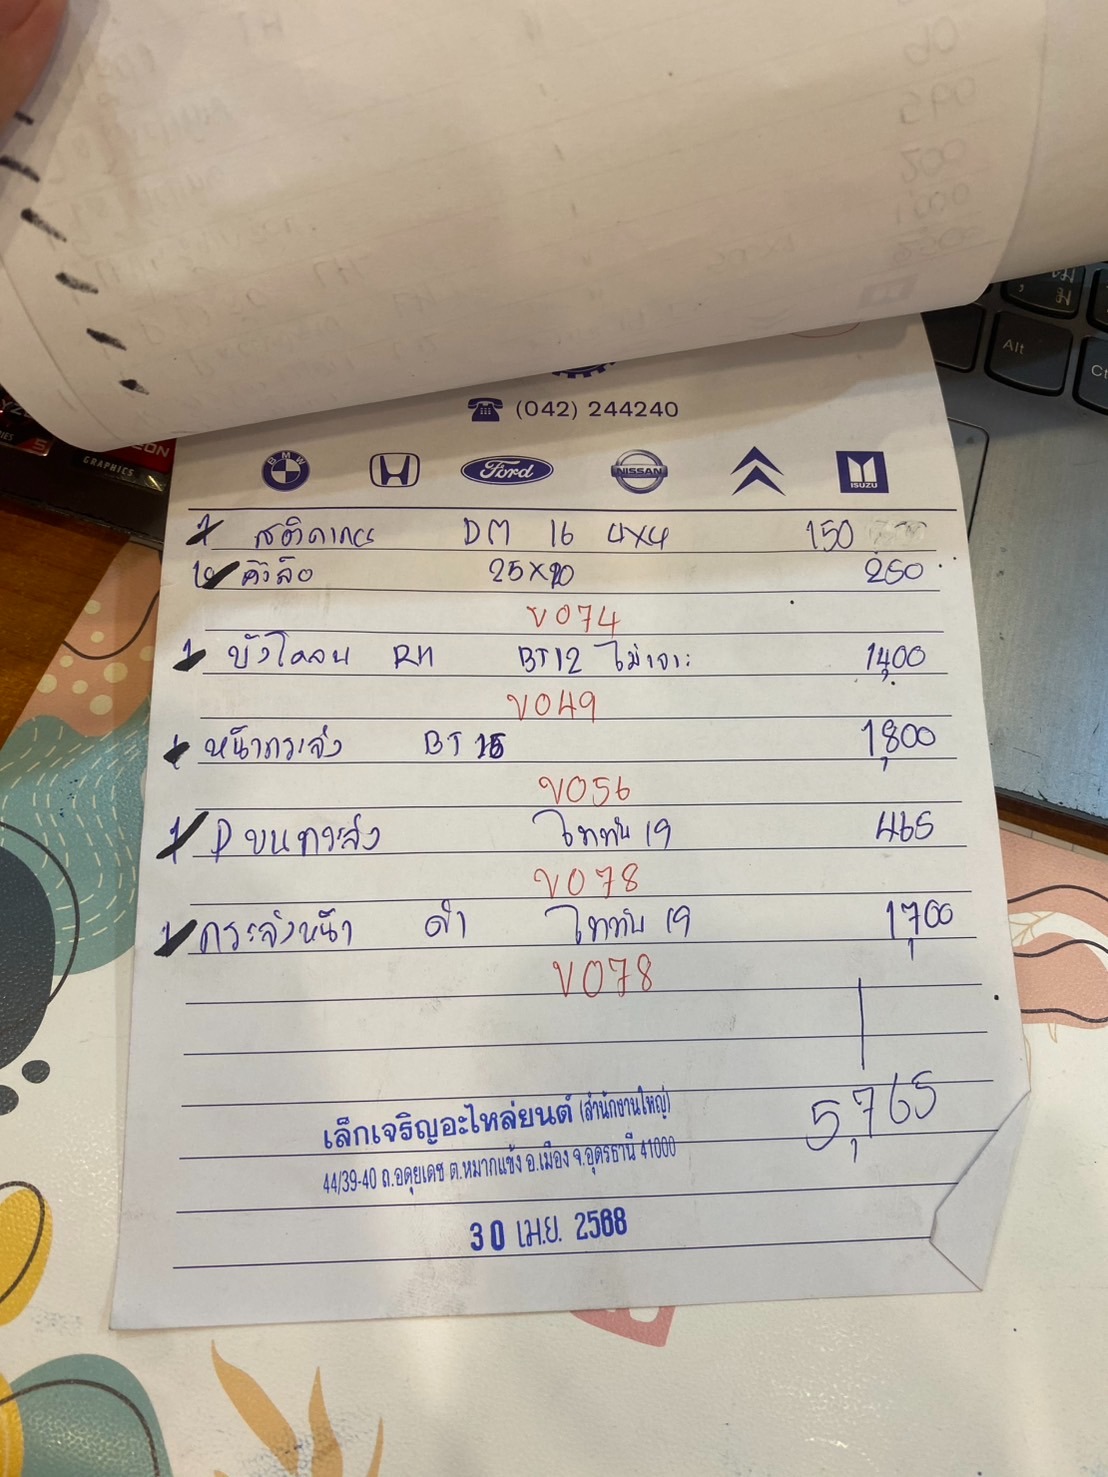 Alt
Ct
GRAPHICS
(042) 244240
BMW
Ford
NISSAN
ISUZU
1 สติกเกอร์ DM 16 4X4 150
10 คิ้วล้อ 25X20 250
V074
1 บังโคลน RH BT12 ไม่เจาะ 1,400
V049
1 หน้ากระจัง BT 15 1,800
V056
1 P บนกระจัง ไททัน 19 465
V078
1 กระจังหน้า ดำ ไททัน 19 1,700
V078
5,765
เล็กเจริญอะไหล่ยนต์ (สำนักงานใหญ่)
44/39-40 ถ.อดุยเดช ต.หมากแข้ง อ.เมือง จ.อุดรธานี 41000
30 เม.ย. 2568